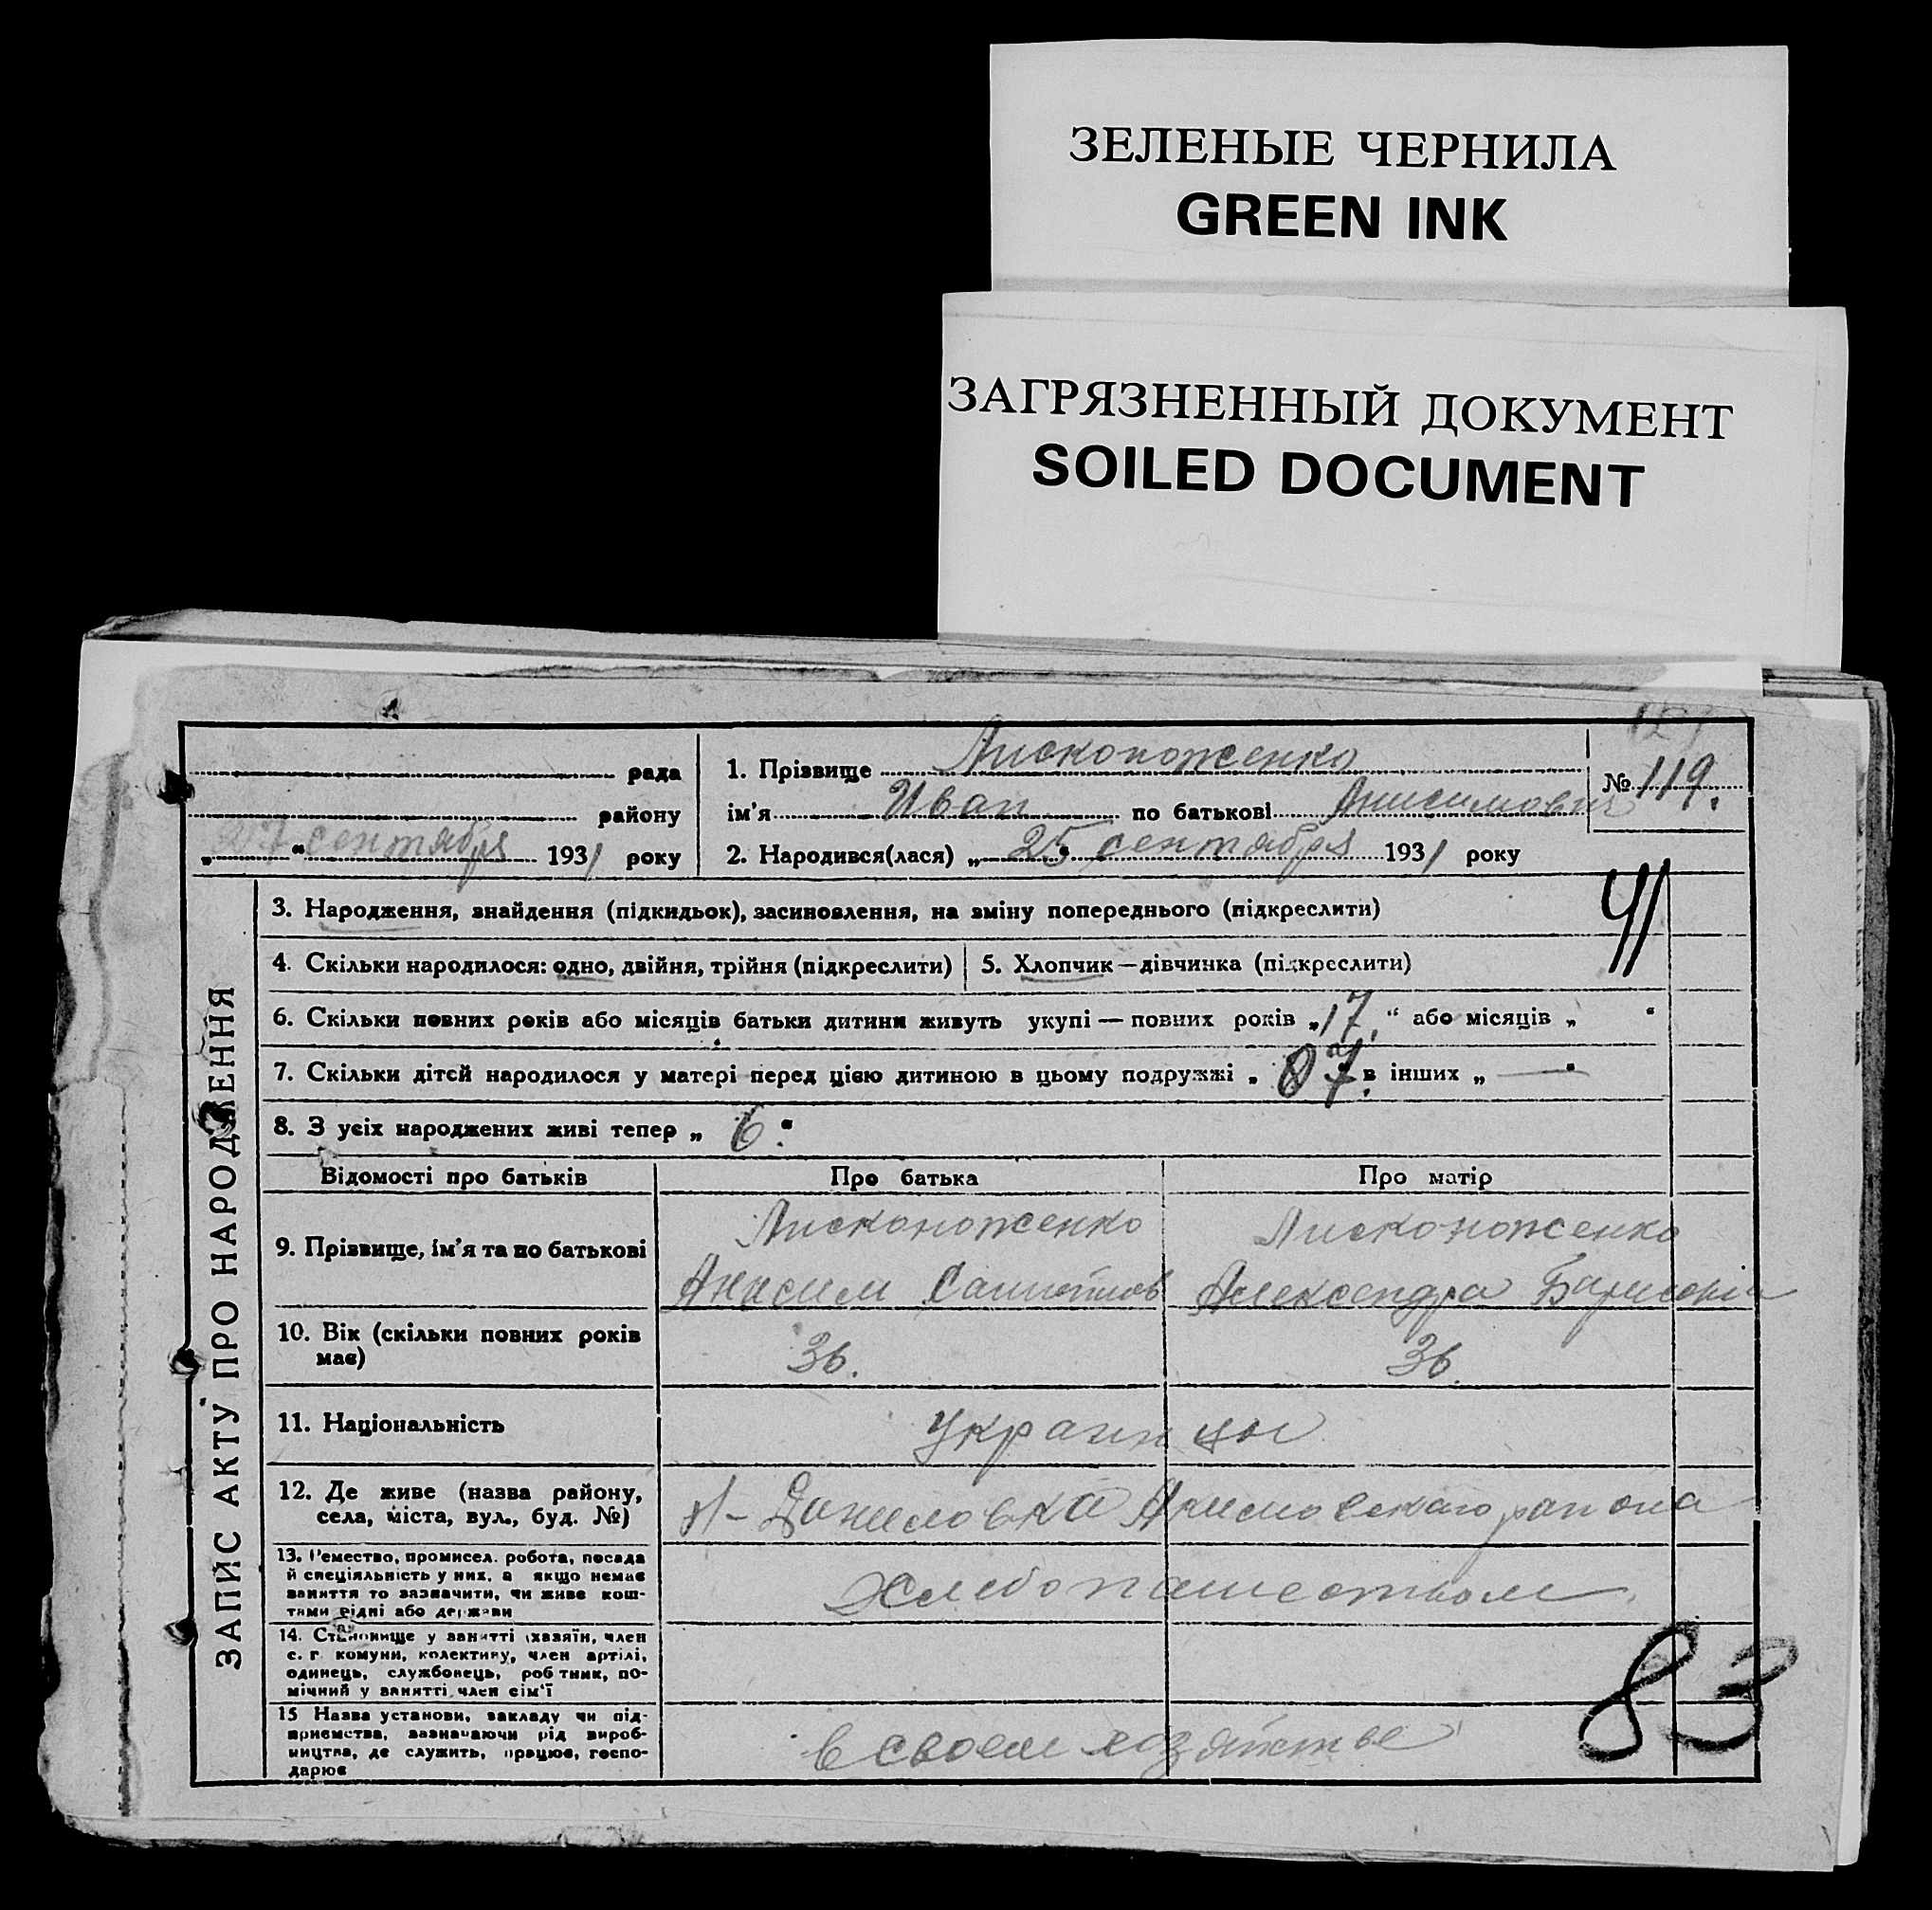 ЗЕЛЕНЫЕ ЧЕРНИЛА
GREEN INK
ЗАГРЯЗНЕННЫЙ ДОКУМЕНТ
SOILED DOCUMENT
рада
району
„27“ сентября 1931 року
1. Прізвище Лисконоженко
ім'я Иван по батькові Анисимович
2. Народився(лася) „25“ сентября 1931 року
№ 119.
41
ЗАПИС АКТУ ПРО НАРОДЖЕННЯ
3. Народження, знайдення (підкидьок), засиновлення, на зміну попереднього (підкреслити)
4. Скільки народилося: одно, двійня, трійня (підкреслити) 5. Хлопчик—дівчинка (підкреслити)
6. Скільки повних років або місяців батьки дитини живуть укупі — повних років „17“ або місяців „ “
7. Скільки дітей народилося у матері перед цією дитиною в цьому подружжі „ 7. в інших „ — “
8. З усіх народжених живі тепер „ 6. “
Відомості про батьків Про батька Про матір
9. Прізвище, ім'я та по батькові
Лисконоженко Лисконоженко
Анисим Александра
10. Вік (скільки повних років має)
36. 36.
11. Національність
Украинцы
12. Де живе (назва району,
села, міста, вул., буд. №)
Даниловка Акимовскаго района
13. Ремество, промисел, робота, посада
й спеціяльність у них, а якщо немає
заняття то зазначити, чи живе кош-
тами рідні або держави
Хлебопашеством
14. Становище у занятті (хазяїн, член
с. г. комуни, колективу, член артілі,
одинець, службовець, робітник, по-
мічний у занятті член сім'ї
15 Назва установи, закладу чи під-
приємства, зазначаючи рід вироб-
ництва, де служить, працює, госпо-
дарює
в своем хозяйстве
83